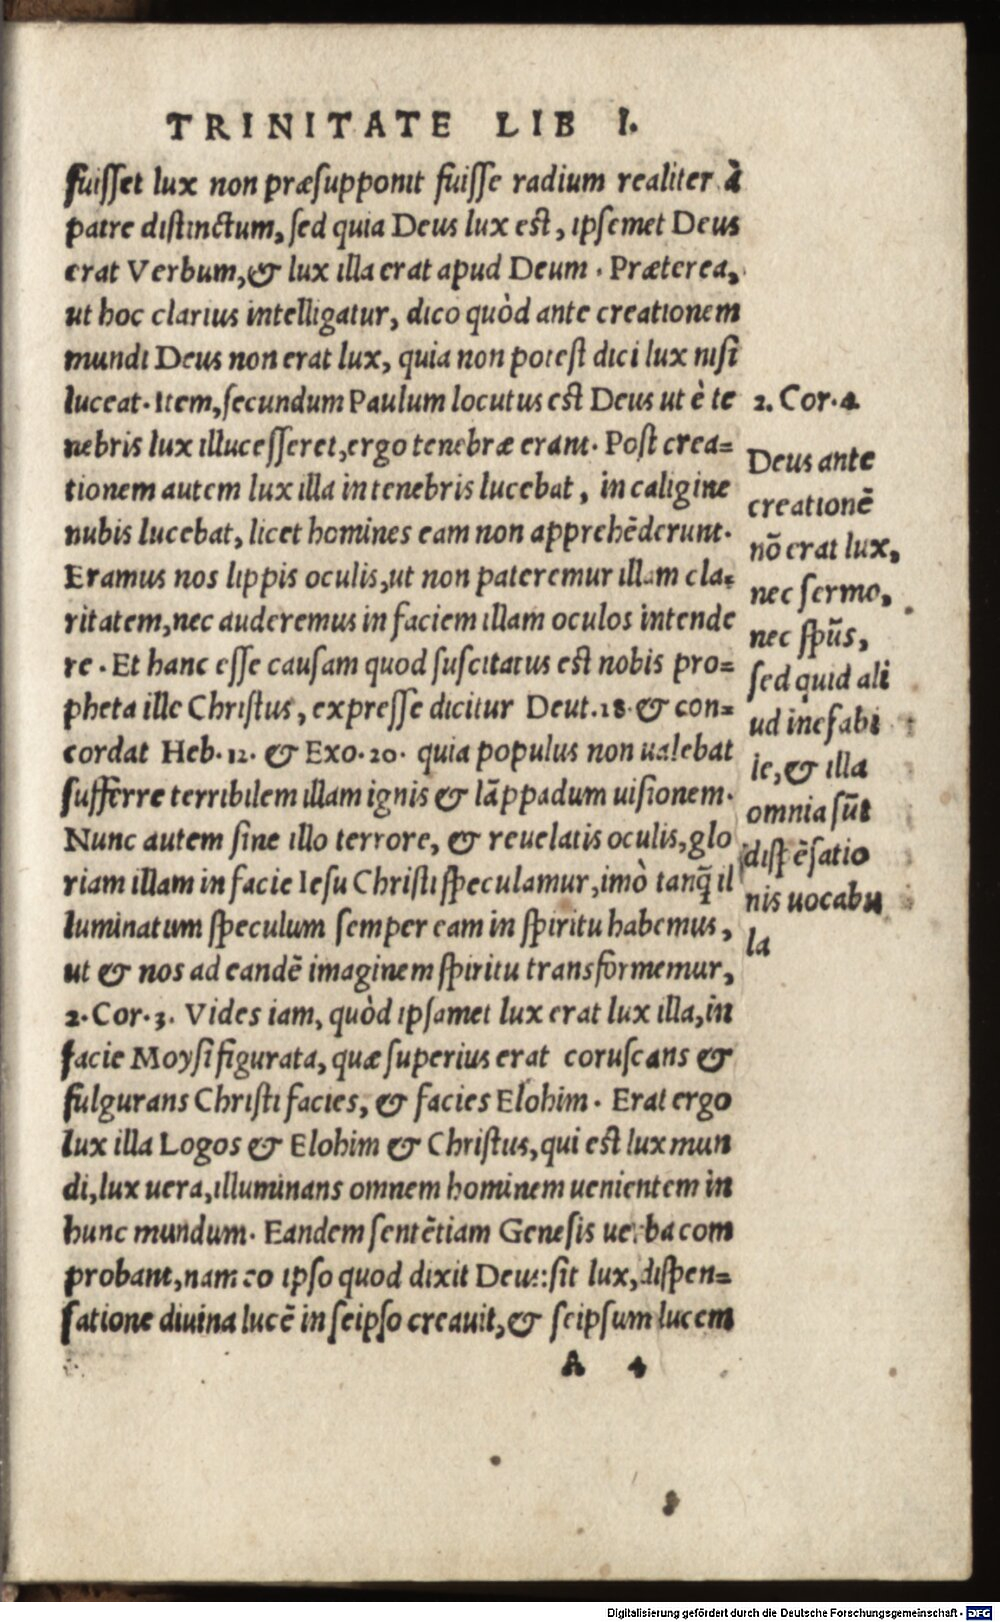 TRINITATE LIB I.
fuisset lux non præsupponit fuisse radium realiter à
patre distinctum, sed quia Deus lux est, ipsemet Deus
erat Verbum, & lux illa erat apud Deum. Præterea,
ut hoc clarius intelligatur, dico quòd ante creationem
mundi Deus non erat lux, quia non potest dici lux nisi
luceat. Item, secundum Paulum locutus est Deus ut è te
nebris lux illucesseret, ergo tenebræ erant. Post crea=
tionem autem lux illa in tenebris lucebat, in caligine
nubis lucebat, licet homines eam non apprehẽderunt.
Eramus nos lippis oculis, ut non pateremur illam cla=
ritatem, nec auderemus in faciem illam oculos intende
re. Et hanc esse causam quod suscitatus est nobis pro=
pheta ille Christus, expresse dicitur Deut. 18. & con=
cordat Heb. 12. & Exo. 20. quia populus non ualebat
sufferre terribilem illam ignis & lãppadum uisionem.
Nunc autem sine illo terrore, & reuelatis oculis, glo
riam illam in facie Iesu Christi speculamur, imò tanq̃ il
luminatum speculum semper eam in spiritu habemus,
ut & nos ad eandẽ imaginem spiritu transformemur,
2. Cor. 3. Vides iam, quòd ipsamet lux erat lux illa, in
facie Moysi figurata, quæ superius erat coruscans &
fulgurans Christi facies, & facies Elohim. Erat ergo
lux illa Logos & Elohim & Christus, qui est lux mun
di, lux uera, illuminans omnem hominem uenientem in
hunc mundum. Eandem sentẽtiam Genesis uerba com
probant, nam eo ipso quod dixit Deus: sit lux, dispen=
satione diuina lucẽ in seipso creauit, & seipsum lucem
A 4
2. Cor. 4
Deus ante
creationẽ
nõ erat lux,
nec sermo,
nec spũs,
sed quid ali
ud inefabi
le, & illa
omnia sũt
dispẽsatio
nis uocabu
la
Digitalisierung gefördert durch die Deutsche Forschungsgemeinschaft - DFG